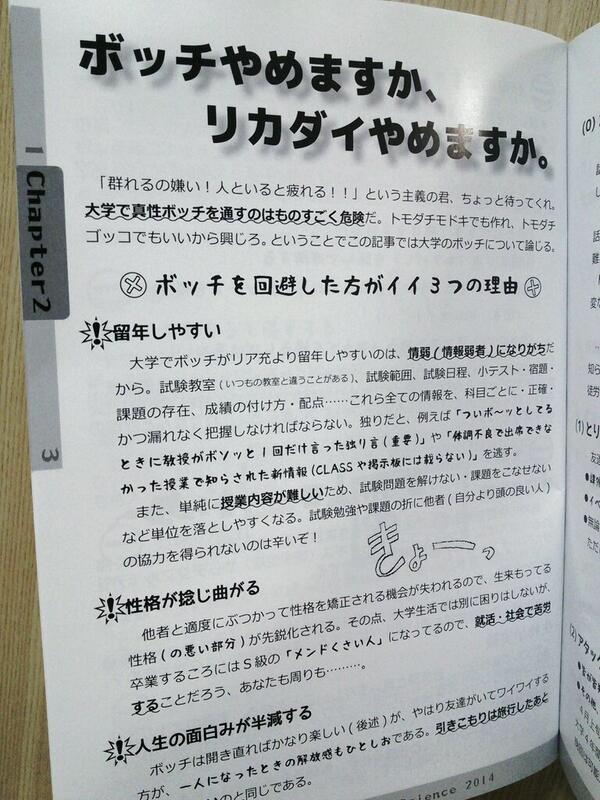 ボッチやめますか、
リカダイやめますか。
1
Chapter2
3
「群れるの嫌い！人といると疲れる！！」という主義の君、ちょっと待ってくれ。
大学で真性ボッチを通すのはものすごく危険だ。トモダチモドキでも作れ、トモダチ
ゴッコでもいいから興じろ。ということでこの記事では大学のボッチについて論じる。
ボッチを回避した方がイイ3つの理由
留年しやすい
大学でボッチがリア充より留年しやすいのは、情弱(情報弱者)になりがちだ
から。試験教室(いつもの教室と違うことがある)、試験範囲、試験日程、小テスト・宿題・
課題の存在、成績の付け方・配点……これら全ての情報を、科目ごとに・正確・
かつ漏れなく把握しなければならない。独りだと、例えば「ついボ〜ッとしてる
ときに教授がボソッと1回だけ言った独り言(重要)」や「体調不良で出席できな
かった授業で知らされた新情報(CLASSや掲示板には載らない)」を逃す。
また、単純に授業内容が難しいため、試験問題を解けない・課題をこなせない
など単位を落としやすくなる。試験勉強や課題の折に他者(自分より頭の良い人)
の協力を得られないのは辛いぞ！
きょーっ
性格が捻じ曲がる
他者と適度にぶつかって性格を矯正される機会が失われるので、生来もってる
性格(の悪い部分)が先鋭化される。その点、大学生活では別に困りはしないが、
卒業するころにはS級の「メンドくさい人」になってるので、就活・社会で苦労
することだろう、あなたも周りも………。
人生の面白みが半減する
ボッチは開き直ればかなり楽しい(後述)が、やはり友達がいてワイワイする
方が、一人になったときの解放感もひとしおである。引きこもりは旅行したあと
と同じである。
Science 2014
(0)
(1)とり
友達
(2)アタック